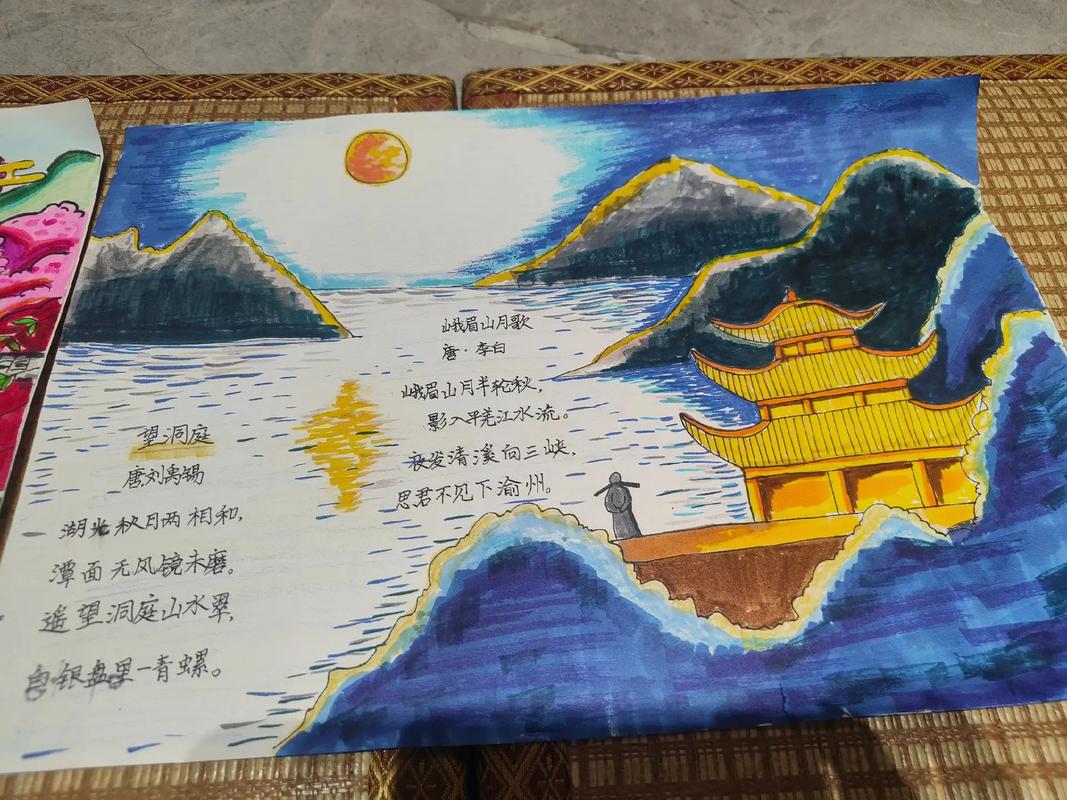 望洞庭
唐刘禹锡
湖光秋月两相和，
潭面无风镜未磨。
遥望洞庭山水翠，
白银盘里一青螺。
峨眉山月歌
唐·李白
峨眉山月半轮秋，
影入平羌江水流。
夜发清溪向三峡，
思君不见下渝州。